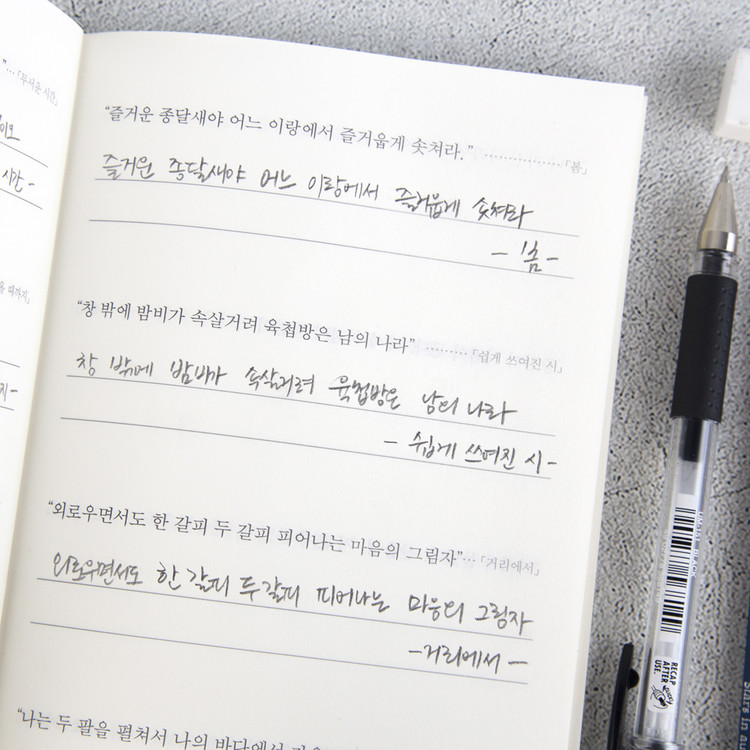 ”…「무서운 시간」
시간-
"즐거운 종달새야 어느 이랑에서 즐거웁게 솟쳐라." ················「봄」
즐거운 종달새야 어느 이랑에서 즐거웁게 솟쳐라
- 봄 -
"창 밖에 밤비가 속살거려 육첩방은 남의 나라" ·········「쉽게 쓰여진 시」
창 밖에 밤비가 속살거려 육첩방은 남의 나라
- 쉽게 쓰여진 시 -
"외로우면서도 한 갈피 두 갈피 피어나는 마음의 그림자"…「거리에서」
외로우면서도 한 갈피 두 갈피 피어나는 마음의 그림자
- 거리에서 -
"나는 두 팔을 펼쳐서 나의 바다에서
RECAP
AFTER
USE.